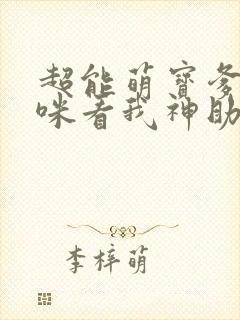 超能萌寶爹
咪看我神助
李梓萌